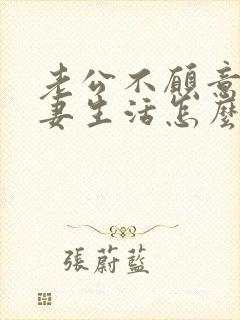 老公不願意
妻生活怎麼
張蔚藍